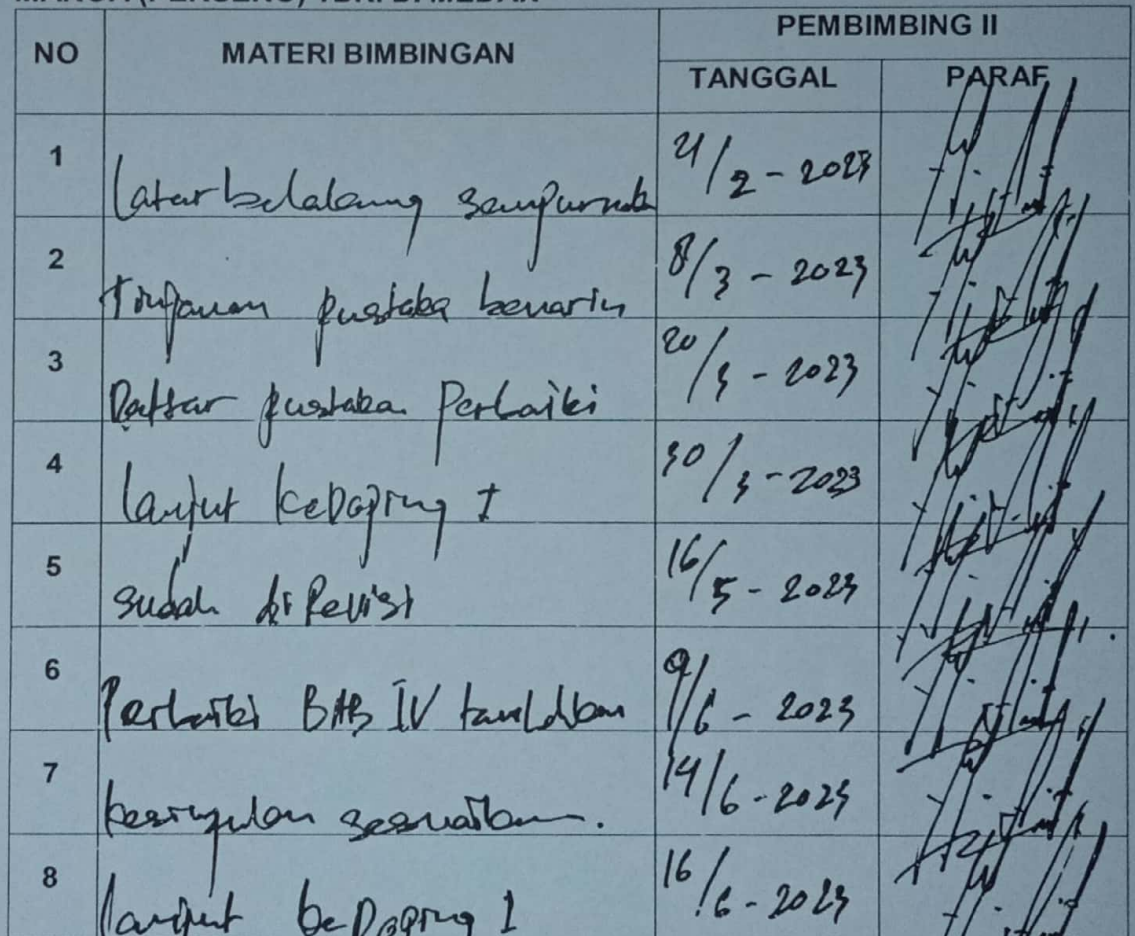 NO MATERI BIMBINGAN PEMBIMBING II
TANGGAL PARAF
1 Latar belakang sempurnakan 21/2 - 2023
2 Tinjauan pustaka benarin 8/3 - 2023
3 Daftar pustaka Perbaiki 20/3 - 2023
4 lanjut ke Doping I 30/3 - 2023
5 sudah di Revisi 16/5 - 2023
6 Perbaiki BAB IV 9/6 - 2023
7 kesimpulan sesuaikan. 14/6 - 2023
8 lanjut ke Doping I 16/6 - 2023